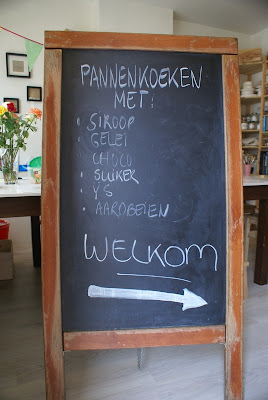 PANNENKOEKEN
MET:
• SIROOP
• GELEI
CHOCO
• SUIKER
• YS
• AARDBEIEN
WELKOM